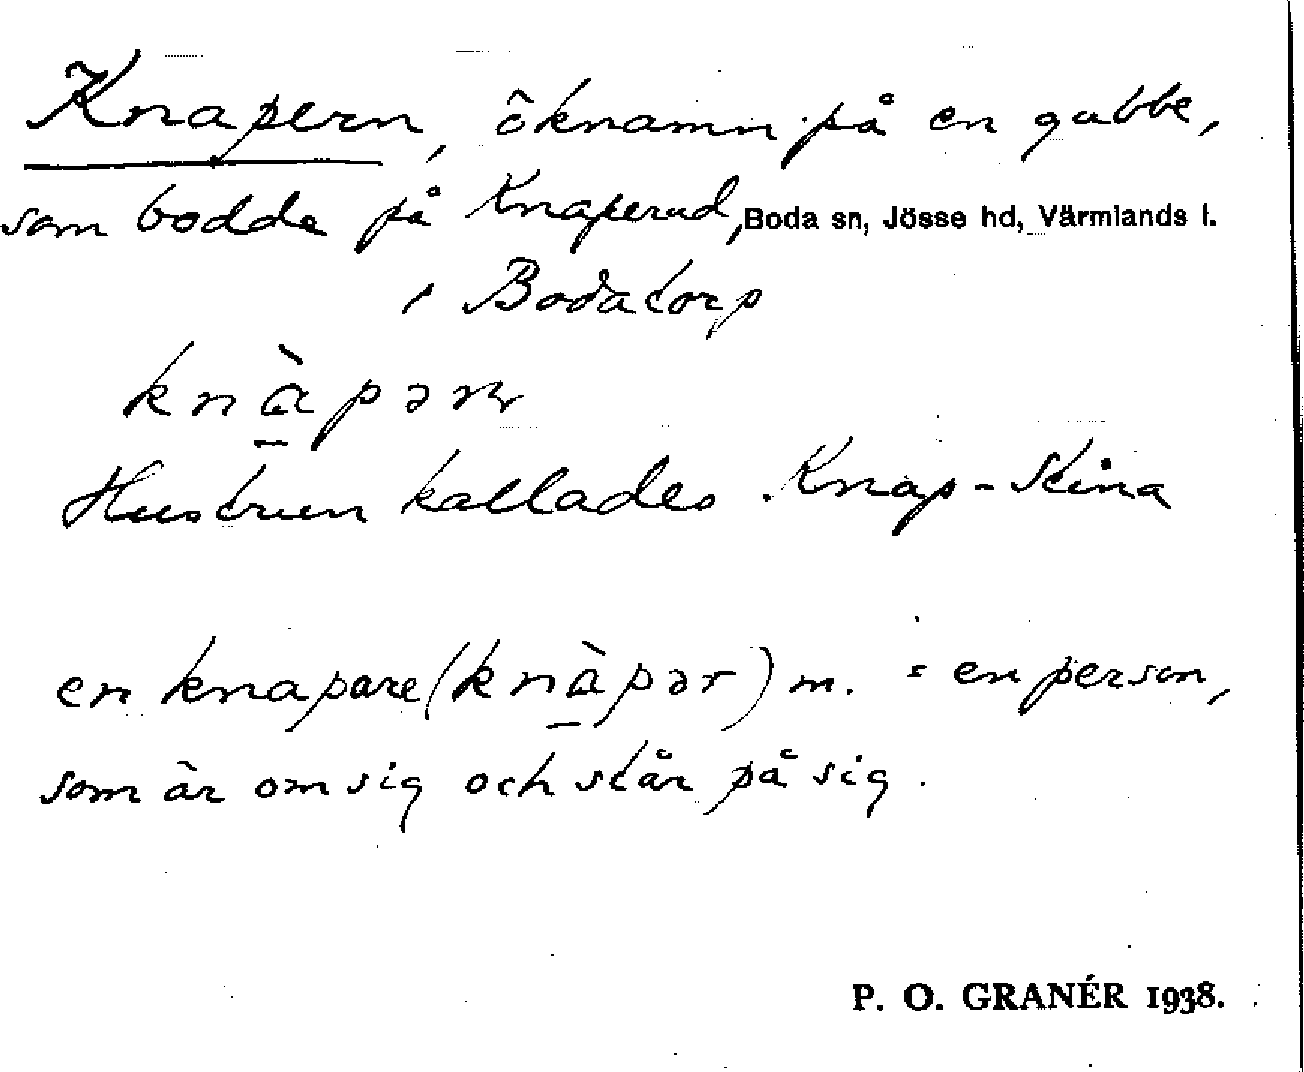 Knapern, öknamn på en gubbe,
som bodde på Knaperud, Boda sn, Jösse hd, Värmlands l.
i Bodatorp
knàpərn
Hustrun kallades Knap-Stina
en knapare (knàpər) m. = en person,
som är om sig och slår på sig.
P. O. GRANÉR 1938.